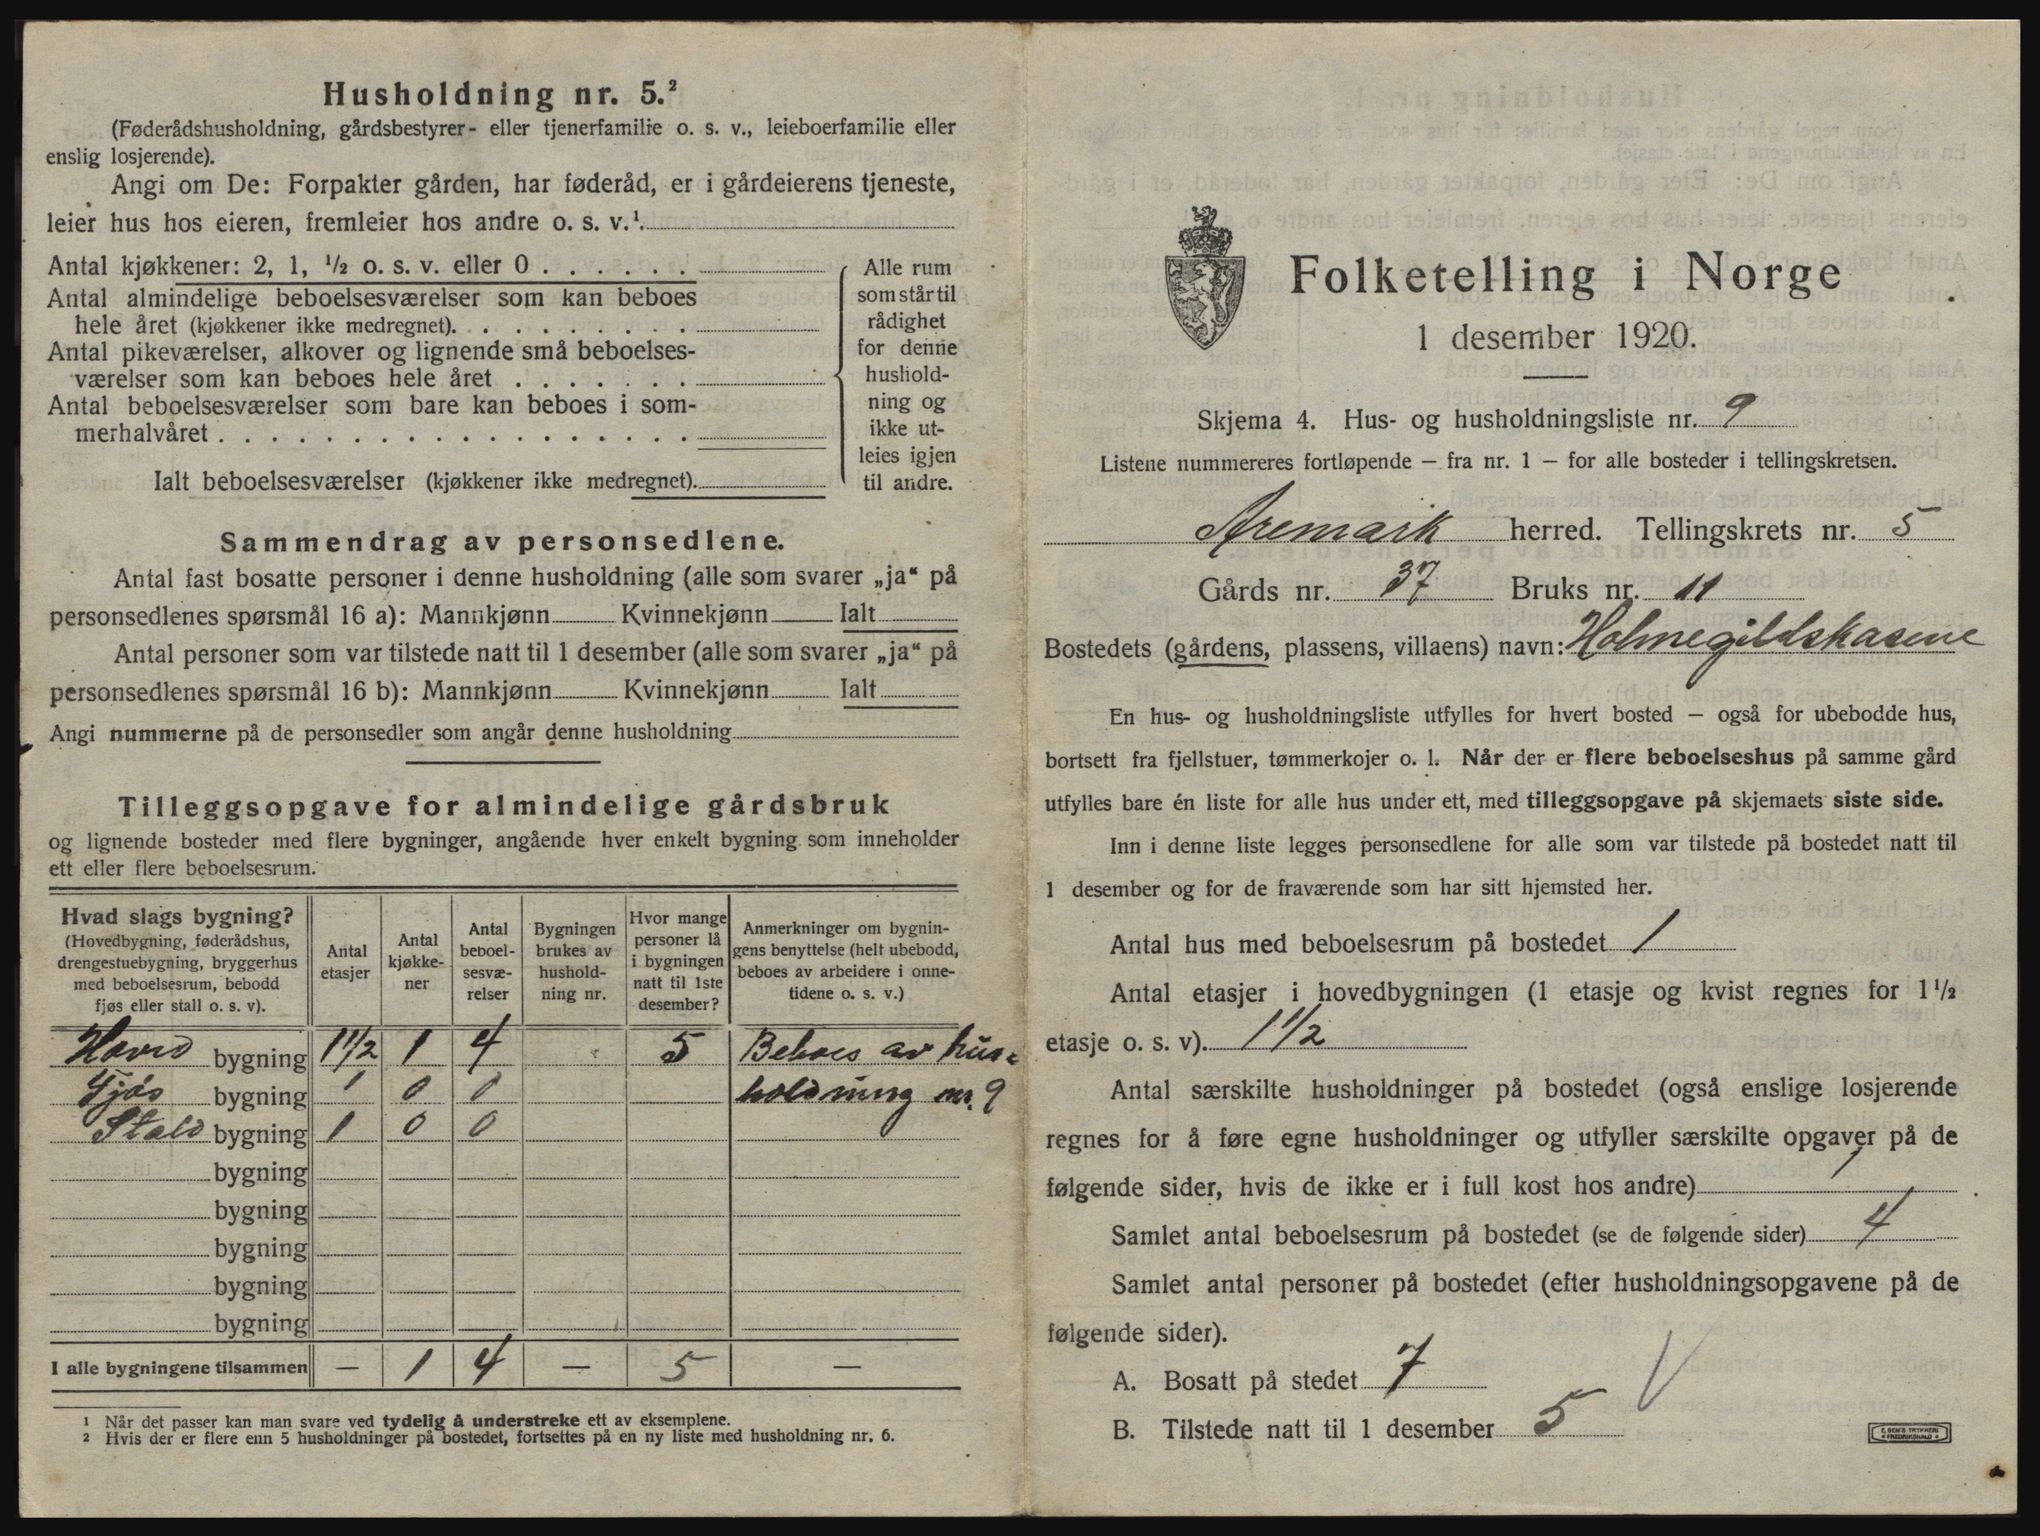 Husholdning nr. 5.²
(Føderådshusholdning, gårdsbestyrer- eller tjenerfamilie o. s. v., leieboerfamilie eller
enslig losjerende).
Angi om De: Forpakter gården, har føderåd, er i gårdeierens tjeneste,
leier hus hos eieren, fremleier hos andre o. s. v.¹
Antal kjøkkener: 2, 1, ½ o. s. v. eller 0 . . . . . .
Antal almindelige beboelsesværelser som kan beboes
hele året (kjøkkener ikke medregnet). . . . . . . . .
Antal pikeværelser, alkover og lignende små beboelses-
værelser som kan beboes hele året . . . . . . .
Antal beboelsesværelser som bare kan beboes i som-
merhalvåret . . . . . . . . . . . . . . . . . .
Ialt beboelsesværelser (kjøkkener ikke medregnet).
Alle rum
som står til
rådighet
for denne
hushold-
ning og
ikke ut-
leies igjen
til andre.
Sammendrag av personsedlene.
Antal fast bosatte personer i denne husholdning (alle som svarer „ja“ på
personsedlenes spørsmål 16 a): Mannkjønn Kvinnekjønn Ialt
Antal personer som var tilstede natt til 1 desember (alle som svarer „ja“ på
personsedlenes spørsmål 16 b): Mannkjønn Kvinnekjønn Ialt
Angi nummerne på de personsedler som angår denne husholdning
Tilleggsopgave for almindelige gårdsbruk
og lignende bosteder med flere bygninger, angående hver enkelt bygning som inneholder
ett eller flere beboelsesrum.
Hvad slags bygning?
(Hovedbygning, føderådshus,
drengestuebygning, bryggerhus
med beboelsesrum, bebodd
fjøs eller stall o. s. v).
Antal
etasjer
Antal
kjøkke-
ner
Antal
beboel-
sesvæ-
relser
Bygningen
brukes av
hushold-
ning nr.
Hvor mange
personer lå
i bygningen
natt til 1ste
desember?
Anmerkninger om bygnin-
gens benyttelse (helt ubebodd,
beboes av arbeidere i onne-
tidene o. s. v.)
Hoved bygning 1½ 1 4 5 Beboes av hus-
Fjøs bygning 1 0 0 holdning nr. 9
Stald bygning 1 0 0
bygning
bygning
bygning
bygning
bygning
I alle bygningene tilsammen — 1 4 — 5 —
¹ Når det passer kan man svare ved tydelig å understreke ett av eksemplene.
² Hvis der er flere enn 5 husholdninger på bostedet, fortsettes på en ny liste med husholdning nr. 6.
Folketelling i Norge
1 desember 1920.
Skjema 4. Hus- og husholdningsliste nr. 9
Listene nummereres fortløpende — fra nr. 1 — for alle bosteder i tellingskretsen.
Aremark herred. Tellingskrets nr. 5
Gårds nr. 37 Bruks nr. 11
Bostedets (gårdens, plassens, villaens) navn: Holmegildskasene
En hus- og husholdningsliste utfylles for hvert bosted — også for ubebodde hus,
bortsett fra fjellstuer, tømmerkojer o. l. Når der er flere beboelseshus på samme gård
utfylles bare én liste for alle hus under ett, med tilleggsopgave på skjemaets siste side.
Inn i denne liste legges personsedlene for alle som var tilstede på bostedet natt til
1 desember og for de fraværende som har sitt hjemsted her.
Antal hus med beboelsesrum på bostedet 1
Antal etasjer i hovedbygningen (1 etasje og kvist regnes for 1½
etasje o. s. v). 1½
Antal særskilte husholdninger på bostedet (også enslige losjerende
regnes for å føre egne husholdninger og utfyller særskilte opgaver på de
følgende sider, hvis de ikke er i full kost hos andre) 1
Samlet antal beboelsesrum på bostedet (se de følgende sider) 4
Samlet antal personer på bostedet (efter husholdningsopgavene på de
følgende sider).
A. Bosatt på stedet 7
B. Tilstede natt til 1 desember 5
E. SEM'S TRYKKERI
FREDRIKSHALD